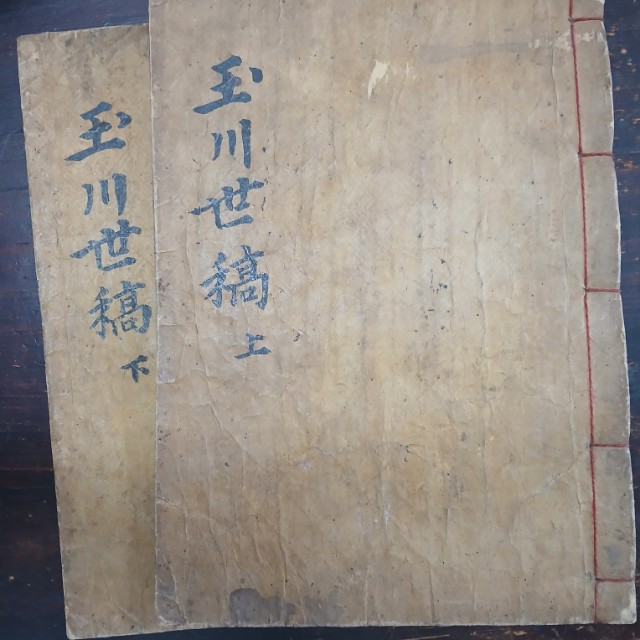 玉川世稿 上
玉川世稿 下